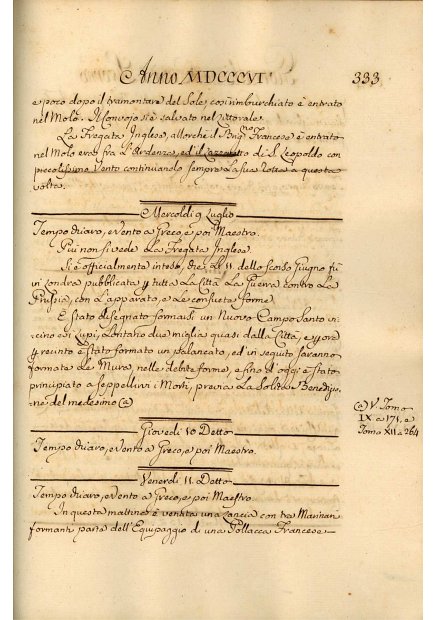 Anno MDCCCVI 333
e poco dopo il tramontare del Sole, così rimburchiato è entrato
nel Molo. Il Convojo si è salvato nel Littorale.
La Fregata Inglese, allorchè il Brig.no Francese è entrato
nel Molo era fra L'Ardenza, ed il Lazzaretto di S. Leopoldo con
piccolissimo Vento continuando sempre La sua rotta a questa
volta.
Mercoldì 9 Luglio
Tempo chiaro, e Vento a Greco, e poi Maestro.
Più non si vede La Fregata Inglese.
Si è officialmente inteso, che Li 11 dello scorso Giugno fù
in Londra pubblicata p tutta La Città La Guerra contro La
Prussia, con L'apparato, e Le consuete forme.
È stato disegnato formarsi un Nuovo Campo Santo vi-
cino ai Lupi, Lontano due miglia quasi dalla Città, e p ora
p recinto è stato formato un palancato, ed in seguito saranno
formate Le Mura, nelle debite forme, e fino d'oggi è stato
principiato a seppellirvi i Morti, previa La Solita Benedizio-
ne del medesimo (a)
(a) V. Tomo
IX. a 171, e
Tomo XII a 264
Giovedì 10 Detto
Tempo chiaro, e Vento a Greco, e poi Maestro.
Venerdì 11. Detto
Tempo chiaro, e Vento a Greco, e poi Maestro.
In questa mattina è venuta una Lancia con tre Marinari
formanti parte dell'Equipaggio di una Pollacca Francese